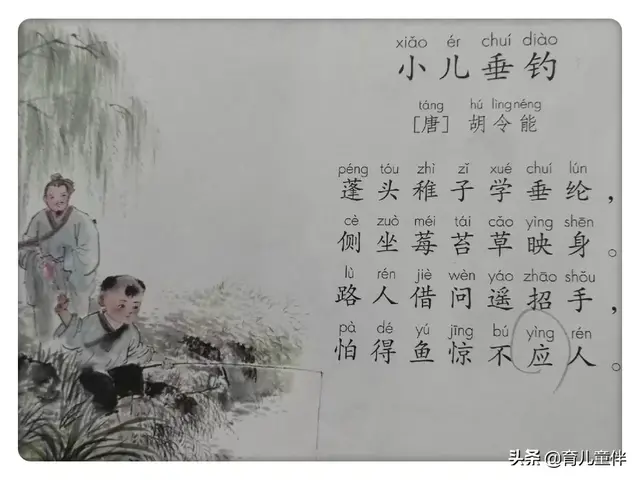 xiǎo ér chuí diào
小儿垂钓
táng hú lìng néng
[唐] 胡令能
péng tóu zhì zǐ xué chuí lún
蓬头稚子学垂纶，
cè zuò méi tái cǎo yìng shēn
侧坐莓苔草映身。
lù rén jiè wèn yáo zhāo shǒu
路人借问遥招手，
pà dé yú jīng bú yìng rén
怕得鱼惊不应人。
头条 @育儿童伴